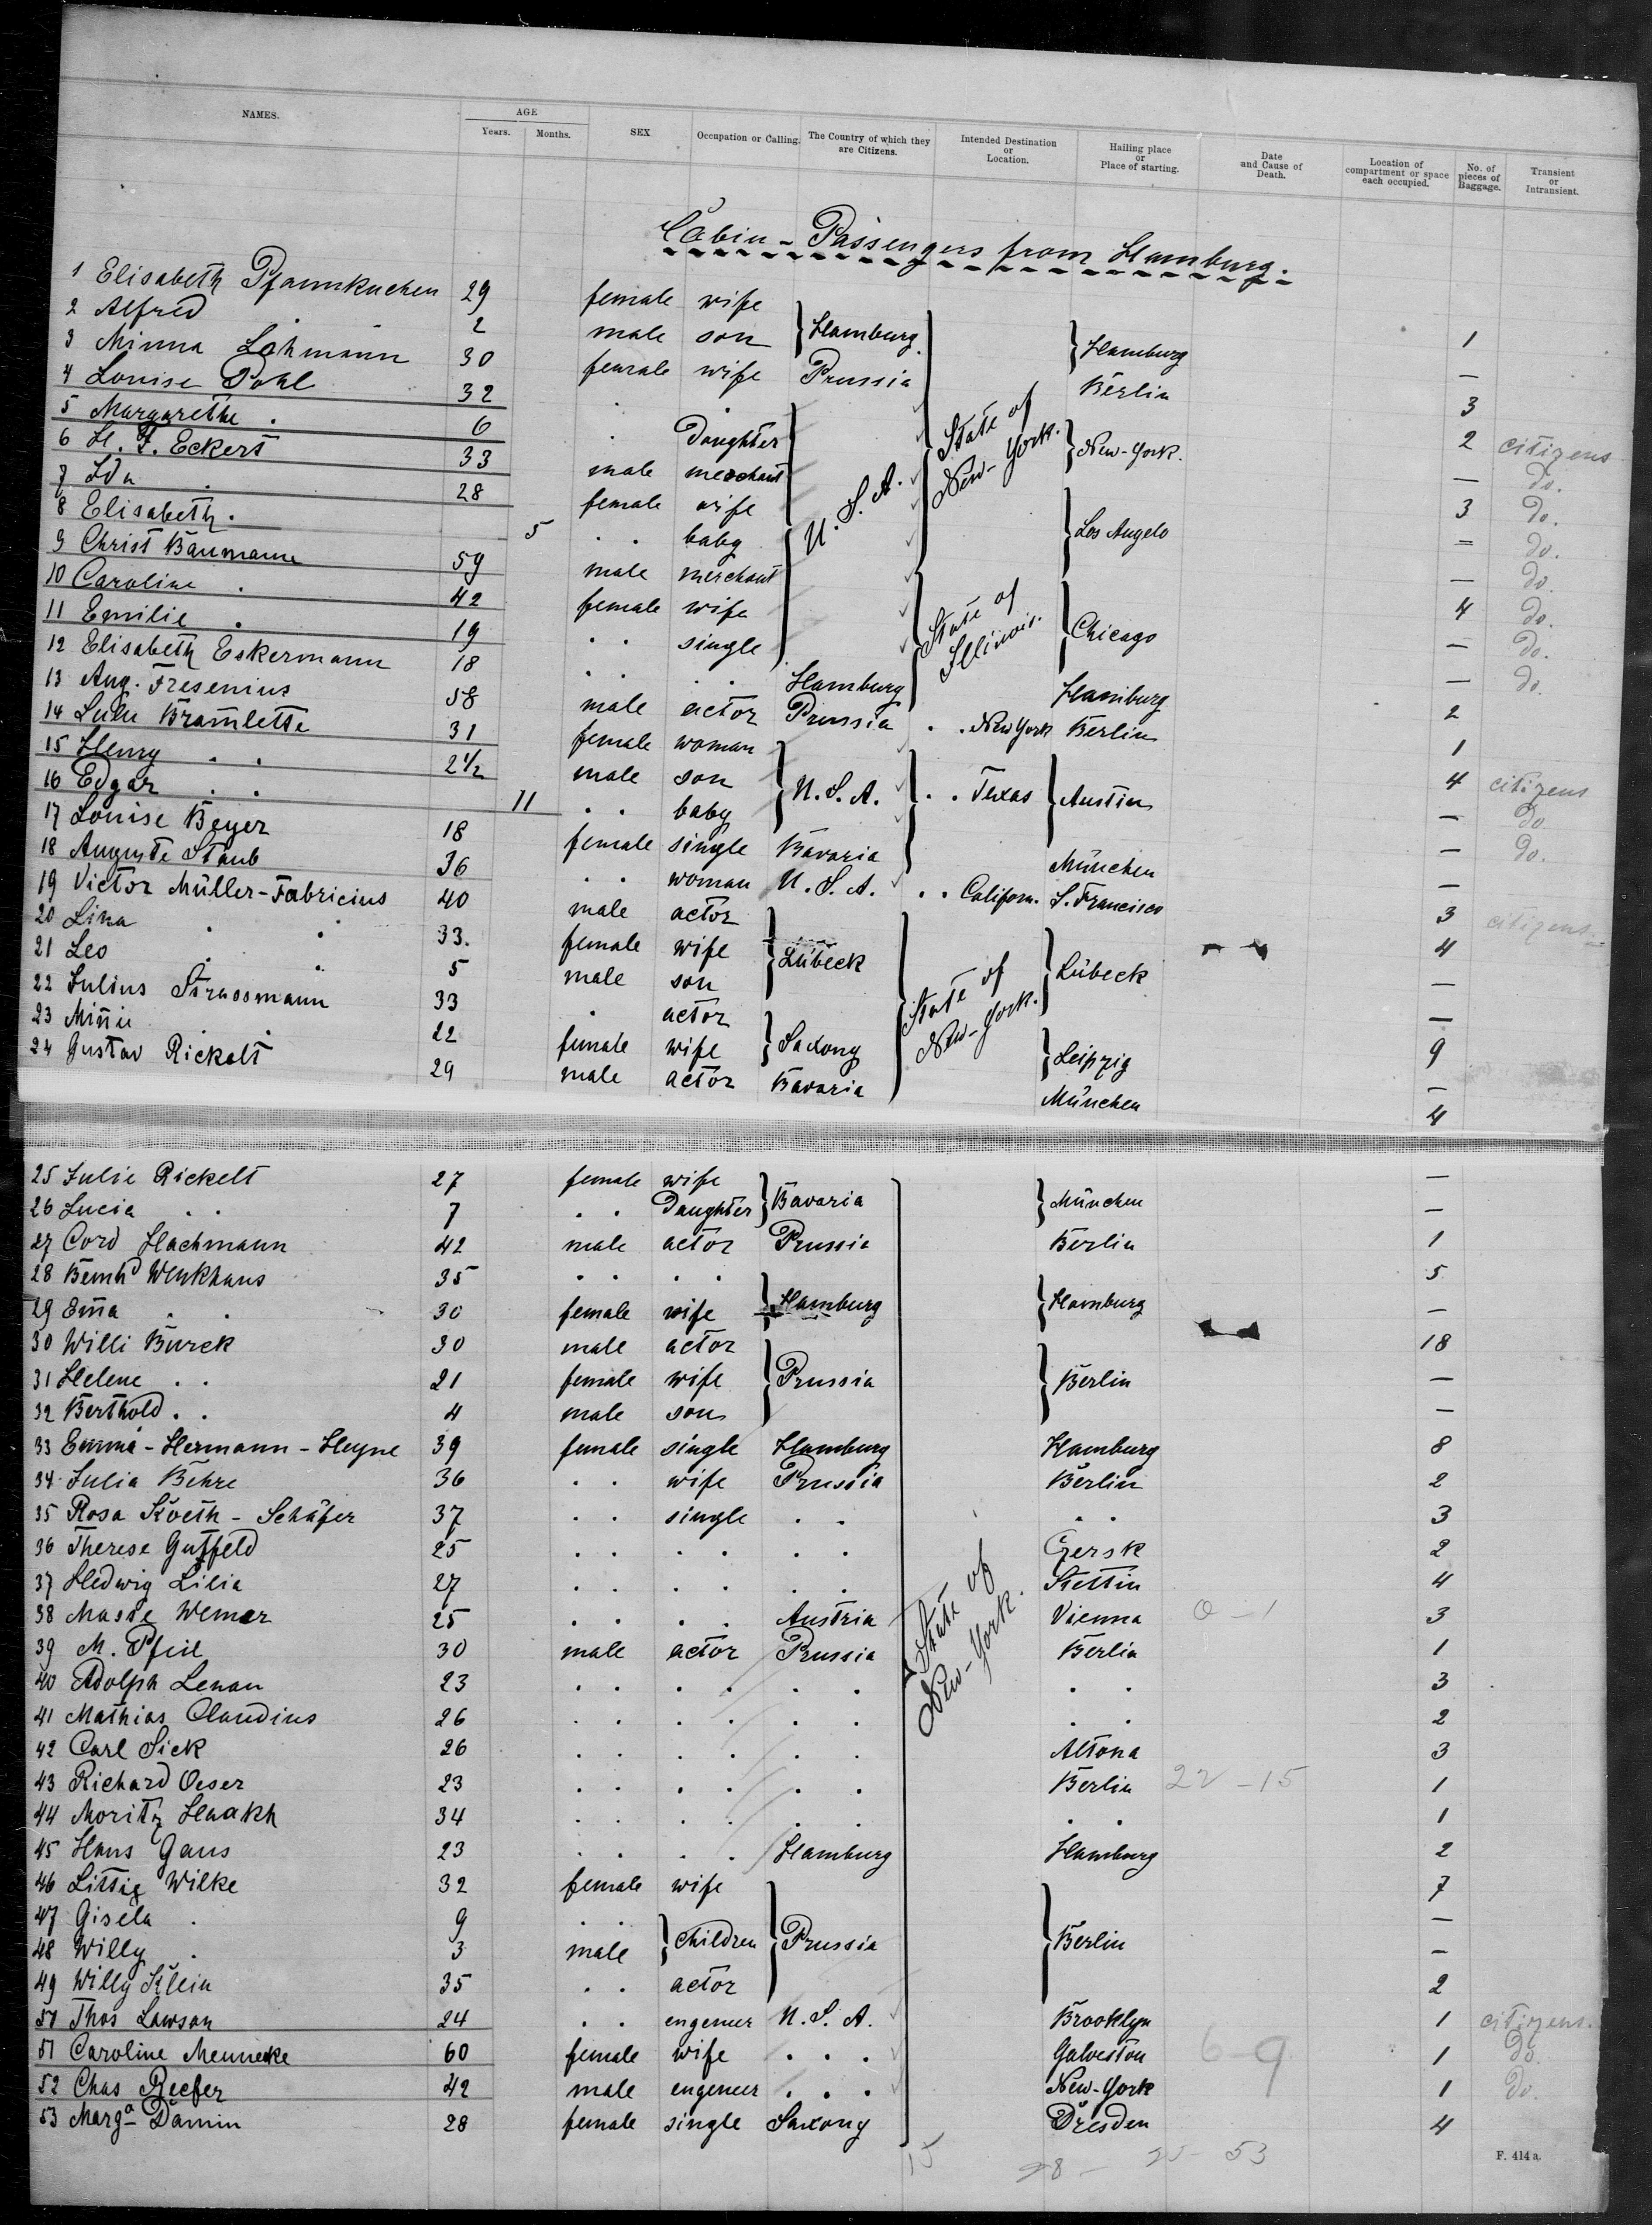 NAMES. AGE Years. Months. SEX Occupation or Calling. The Country of which they are Citizens. Intended Destination or Location. Hailing place or Place of starting. Date and Cause of Death. Location of compartment or space each occupied. No. of pieces of Baggage. Transient or Intransient.
Cabin - Passengers from Hamburg.
1 Elisabeth Pfannkuchen 29 female wife } Hamburg } State of New-York. } Hamburg 1
2 Alfred . . 2 male son —
3 Minna Lahmann 30 female wife Prussia Berlin 3
4 Louise Pohl 32 . . } U. S. A. } New-York. 2 citizens
5 Margarethe . 6 . Daughter — do.
6 H. F. Eckert 33 male merchant } Los Angelo 3 do.
7 Ida . 28 female wife = do.
8 Elisabeth . 5 . . baby — do.
9 Christ Baumann 59 male merchant } State of Illinois. } Chicago 4 do.
10 Caroline . 42 female wife — do.
11 Emilie . 19 . . single — do.
12 Elisabeth Eckermann 18 . . . Hamburg Hamburg 2
13 Aug. Fresenius 58 male actor Prussia . . New York Berlin 1
14 Lulu Bramlette 31 female woman } U. S. A. } . . Texas } Austin 4 citizens
15 Henry . . 2 1/2 male son — do
16 Edgar . . 11 . . baby — do.
17 Louise Beyer 18 female single Bavaria München —
18 Auguste Staub 36 . . woman U. S. A. . . Californ. S. Francisco 3 citizens.
19 Victor Müller-Fabricius 40 male actor } Lübeck } State of New-York. } Lübeck 4
20 Lina . . 33. female wife —
21 Leo . . 5 male son —
22 Julius Strassmann 33 . actor } Saxony } Leipzig 9
23 Minnie . . 22 female wife —
24 Gustav Rickelt 29 male actor Bavaria München 4
25 Julie Rickelt 27 female wife } Bavaria } State of New-York. } München —
26 Lucia . . 7 . . Daughter —
27 Cord Hachmann 42 male actor Prussia Berlin 1
28 Bernhd Wenkhaus 35 . . . . } Hamburg } Hamburg 5
29 Emma . . 30 female wife —
30 Willi Burck 30 male actor } Prussia } Berlin 18
31 Helene . . 21 female wife —
32 Berthold . . 4 male son —
33 Emma-Hermann-Heyne 39 female single Hamburg Hamburg 8
34 Julia Behre 36 . . wife Prussia Berlin 2
35 Rosa Kveth - Schäfer 37 . . single . . . . 3
36 Therese Gutfeld 25 . . . . . . Czersk 2
37 Hedwig Lilia 27 . . . . . . Stettin 4
38 Masie Wemer 25 . . . . Austria Vienna 0 - 1 3
39 M. Pfeil 30 male actor Prussia Berlin 1
40 Adolph Lenau 23 . . . . . . . . 3
41 Mathias Claudius 26 . . . . . . . . 2
42 Carl Sick 26 . . . . . . Altona 3
43 Richard Oeser 23 . . . . . . Berlin 22 - 15 1
44 Moritz 34 . . . . . . . . 1
45 Hans Gaus 23 . . . . Hamburg Hamburg 2
46 Wilke 32 female wife } Prussia } Berlin 7
47 Gisela . 9 . . } children —
48 Willy . 3 male —
49 Willy Klein 35 . . actor 2
50 Thos Lawson 24 . . engeneer U. S. A. Brooklyn 1 citizens.
51 Caroline Mennecke 60 female wife . . . Galveston 6 - 9 1 do.
52 Chas Reefer 42 male engeneer . . . New-York 1 do.
53 Marga Damm 28 female single Saxony Dresden 4
15 28 - 25 - 53
F. 414 a.